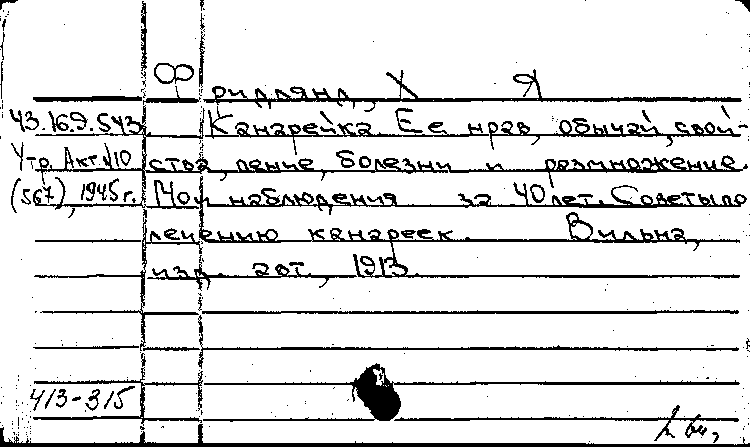 Фридлянд, Х Я
43.169.543 Канарейка. Ее нрав, обычай, свой-
Утр. Акт №10 ства, пение, болезни и размножение.
(567), 1945 г. Мои наблюдения за 40 лет. Советы по
лечению канареек. Вильна,
изд. авт., 1913.
413-315